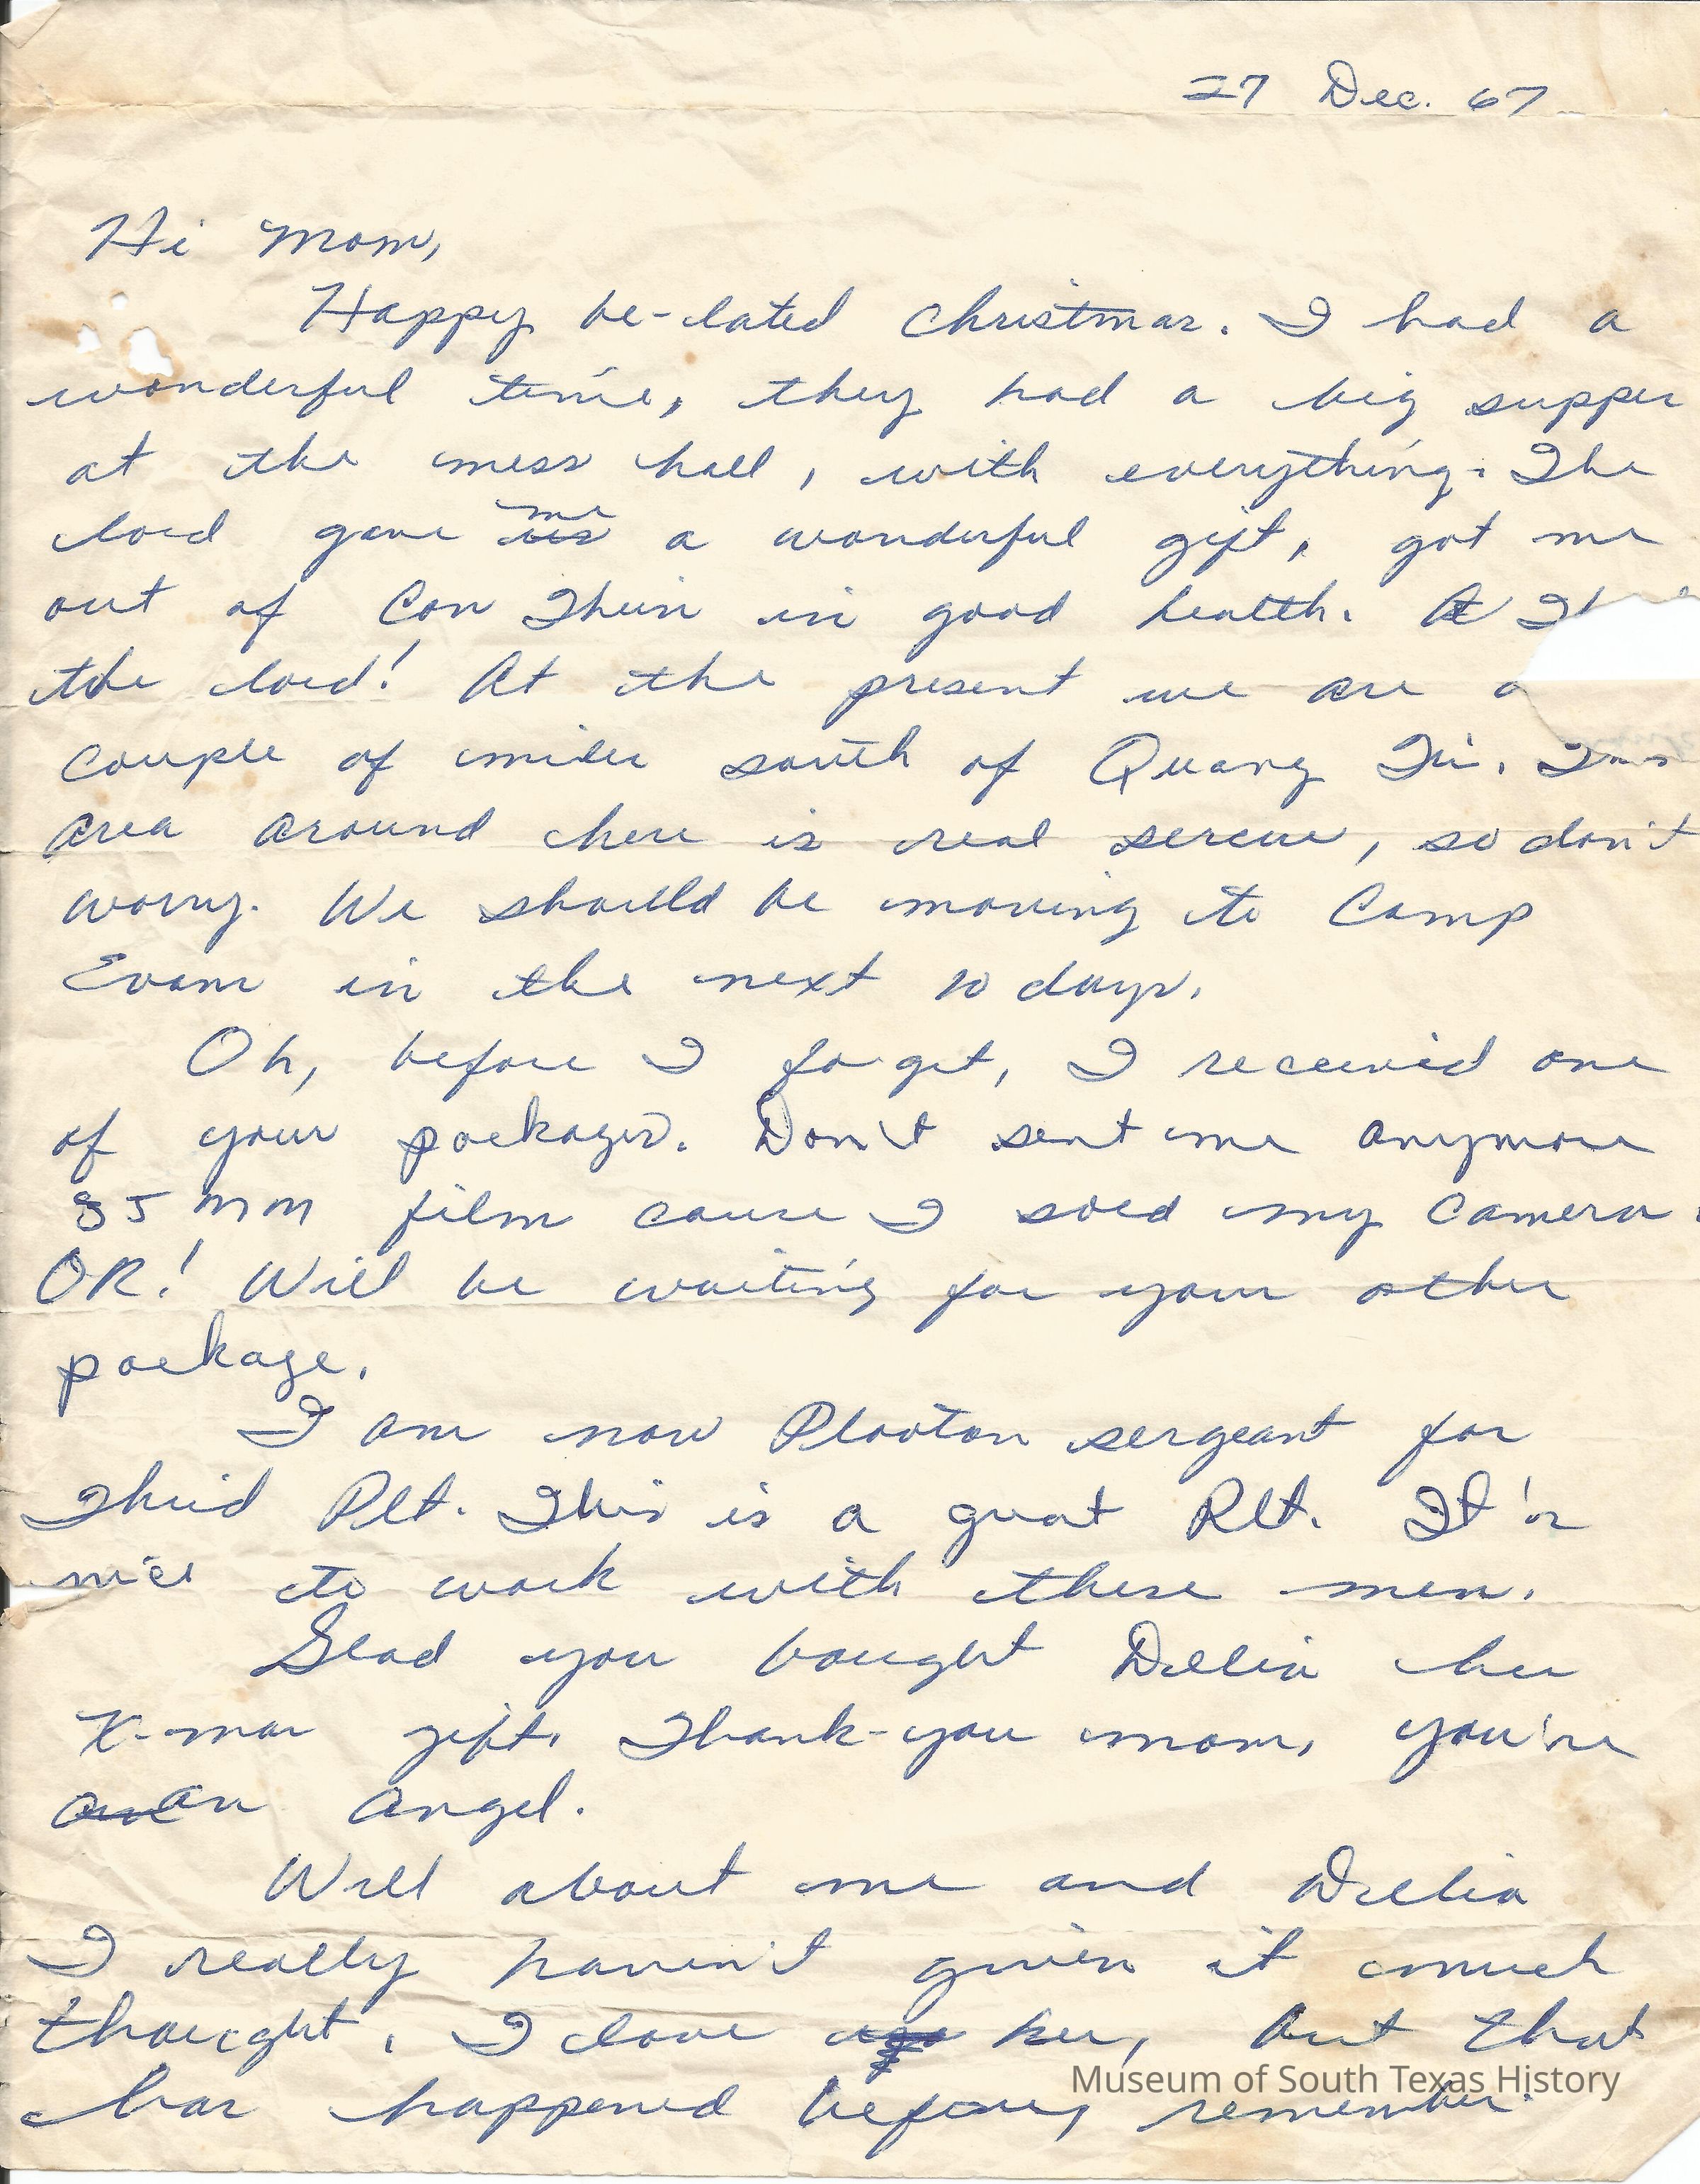 27 Dec. 67
Hi Mom,
Happy be-lated Christmas. I had a
wonderful time, they had a big supper
at the mess hall, with everything. The
lord gave us me a wonderful gift, got me
out of Con Thien in good health. At
the lord! At the present we are a
couple of miles south of Quang Tri. This
area around here is real serene, so don't
worry. We should be moving to Camp
Evans in the next 10 days.
Oh, before I forget, I received one
of your packages. Don't sent me anymore
35 mm film cause I sold my camera.
OK! Will be waiting for your other
package.
I am now Plooton sergeant for
Third Plt. This is a great Plt. It's
nice to work with these men.
Glad you bought Delia her
X-mas gift. Thank-you mom, you're
an an angel.
Well about me and Delia
I really haven't given it much
thought. I love her, but that
has happened before, remember.
Museum of South Texas History